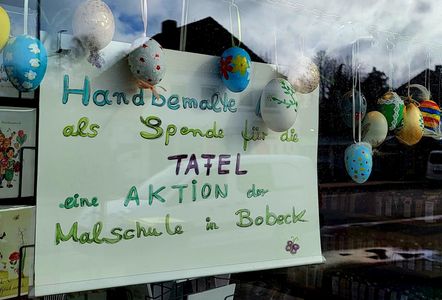 Handbemalte
als Spende für die
TAFEL
eine AKTION der
Malschule in Bobeck